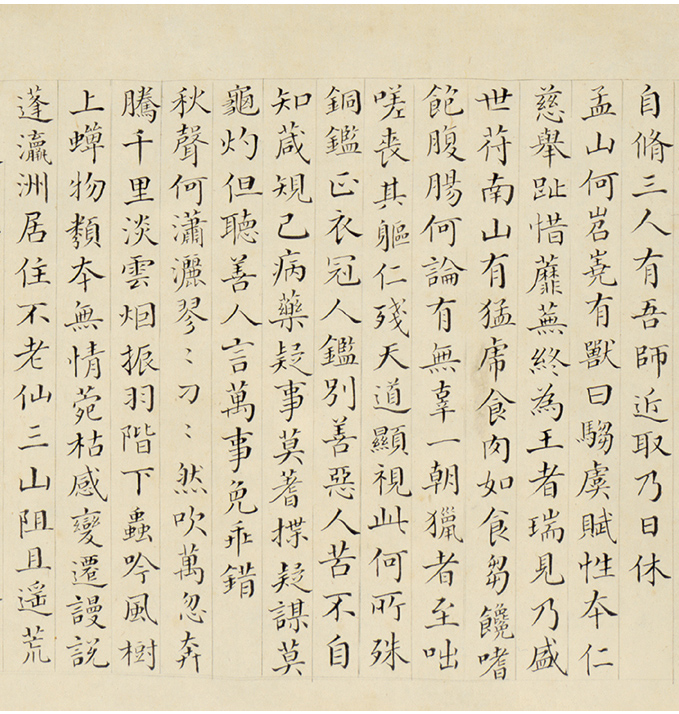 自脩三人有吾師近取乃日休
孟山何岧嶤有獸曰騶虞賦性本仁
慈舉趾惜蘼蕪終為王者瑞見乃盛
世苻南山有猛虎食肉如食芻饞嗜
飽腹腸何論有無辜一朝獵者至咄
嗟喪其軀仁殘天道顯視此何所殊
銅鑑正衣冠人鑑别善惡人苦不自
知葴規己病藥疑事莫蓍揲疑謀莫
龜灼但聽善人言萬事免乖錯
秋聲何瀟灑翏〻刁〻然吹萬忽奔
騰千里淡雲烟振羽階下蟲吟風樹
上蟬物類本無情菀枯感變遷謾説
蓬瀛洲居住不老仙三山阻且遥荒